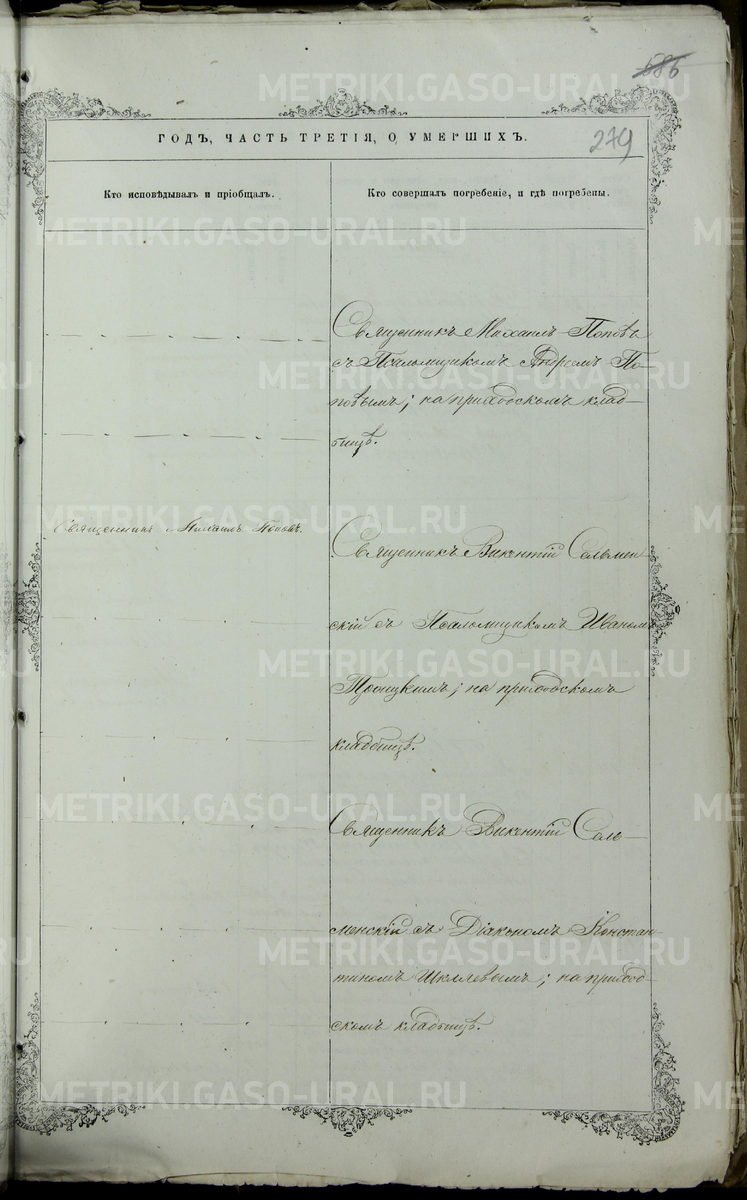 686
ГОДЪ, ЧАСТЬ ТРЕТІЯ, О УМЕРШИХЪ.
279
Кто исповѣдывалъ и пріобщалъ.
Кто совершалъ погребеніе, и гдѣ погребены.
Священникъ Михаилъ Поповъ
съ Псаломщикомъ Андреемъ По-
повымъ; на приходскомъ клад-
бищѣ.
Священникъ Михаилъ Поповъ.
Священникъ Викентій Сельмен-
скій съ Псаломщикомъ Иваномъ
Троицкимъ; на приходскомъ
кладбищѣ.
Священникъ Викентій Сель-
менскій съ Діакономъ Констан-
тиномъ Шкляевымъ; на приход-
скомъ кладбищѣ.
METRIKI.GASO-URAL.RU